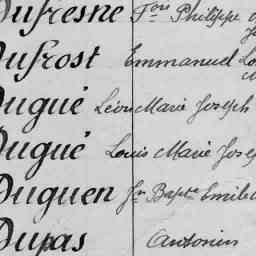 Dufresne Fois Philippe
Dufrost Emmanuel
Dugué Léon Marie Joseph
Dugué Louis Marie Jose
Duguen Jn Bapte Emile
Dupas Antonin